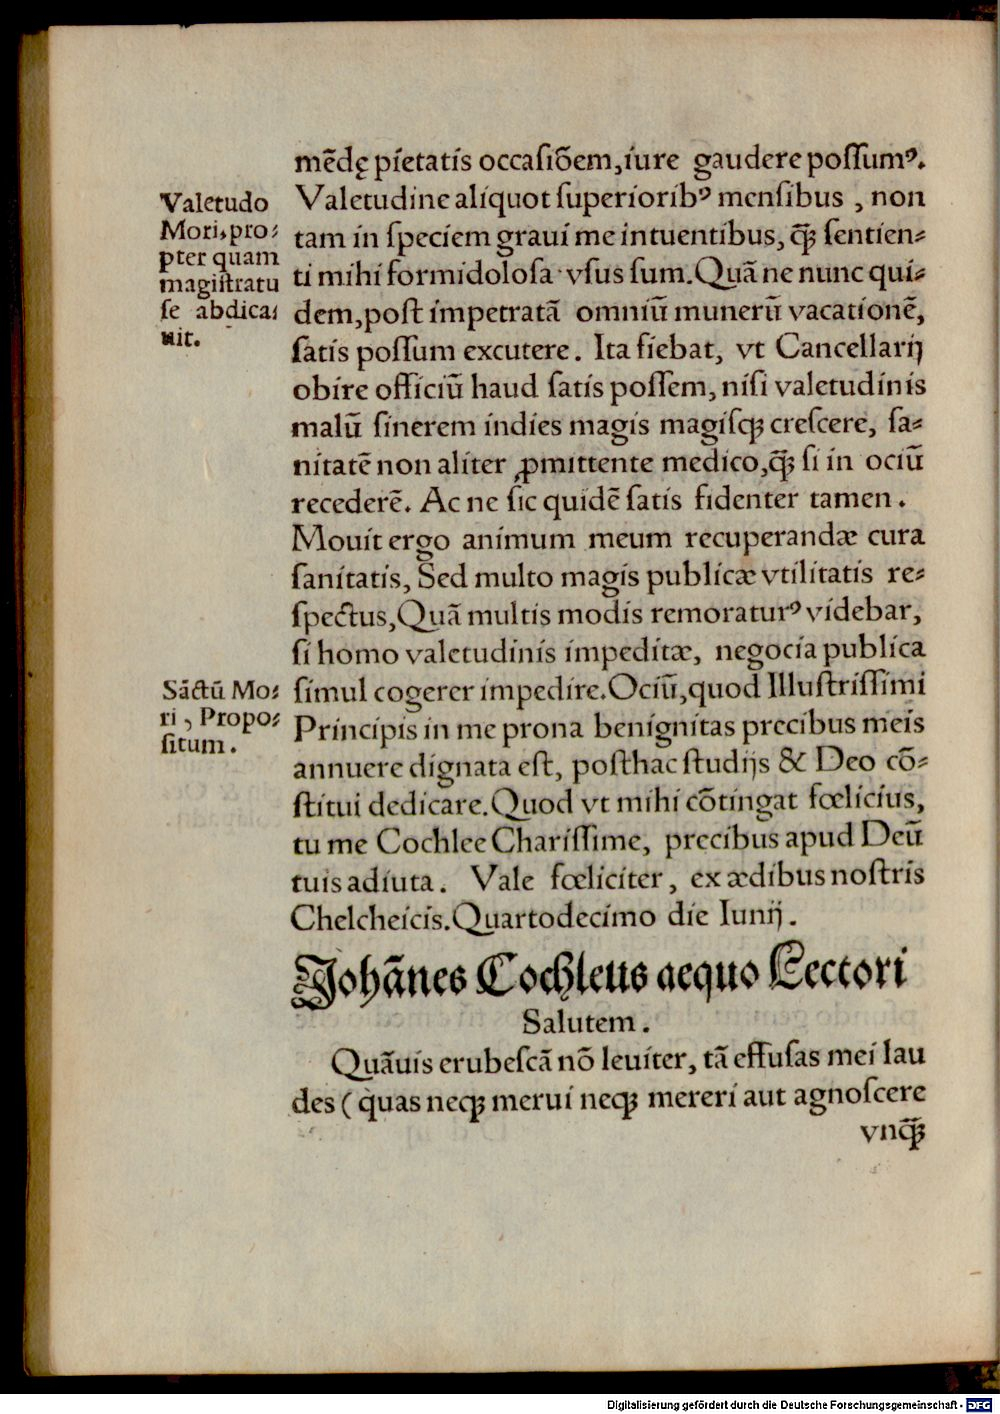 mēdę pietatis occasiōem, iure gaudere poſſumꝰ.
Valetudine aliquot ſuperioribꝰ menſibus , non
tam in ſpeciem graui me intuentibus, q̄ꝫ ſentien⸗
ti mihi formidoloſa vſus ſum. Quā ne nunc qui⸗
dem, poſt impetratā omniū munerū vacationē,
ſatis poſſum excutere. Ita fiebat, vt Cancellarij
obire officiū haud ſatis poſſem, niſi valetudinis
malū ſinerem indies magis magiſqꝫ creſcere, ſa⸗
nitatē non aliter ꝓmittente medico, q̄ꝫ ſi in ociū
recederē. Ac ne ſic quidē ſatis fidenter tamen .
Mouit ergo animum meum recuperandæ cura
ſanitatis, Sed multo magis publicæ vtilitatis re⸗
ſpectus, Quā multis modis remoraturꝰ videbar,
ſi homo valetudinis impeditæ, negocia publica
ſimul cogerer impedire. Ociū, quod Illuſtriſſimi
Principis in me prona benignitas precibus meis
annuere dignata eſt, poſthac ſtudijs & Deo cō⸗
ſtitui dedicare. Quod vt mihi cōtingat fœlicius,
tu me Cochlee Chariſſime, precibus apud Deū
tuis adiuta . Vale fœliciter , ex ædibus noſtris
Chelcheicis. Quartodecimo die Iunij .
Valetudo
Mori, pro⸗
pter quam
magiſtratu
ſe abdica⸗
uit.
Sāctū Mo⸗
ri , Propo⸗
ſitum .
Johānes Cochleus aequo Lectori
Salutem .
Quāuis erubeſcā nō leuiter, tā effuſas mei lau
des ( quas neqꝫ merui neqꝫ mereri aut agnoſcere
vnq̄ꝫ
Digitalisierung gefördert durch die Deutsche Forschungsgemeinschaft - DFG